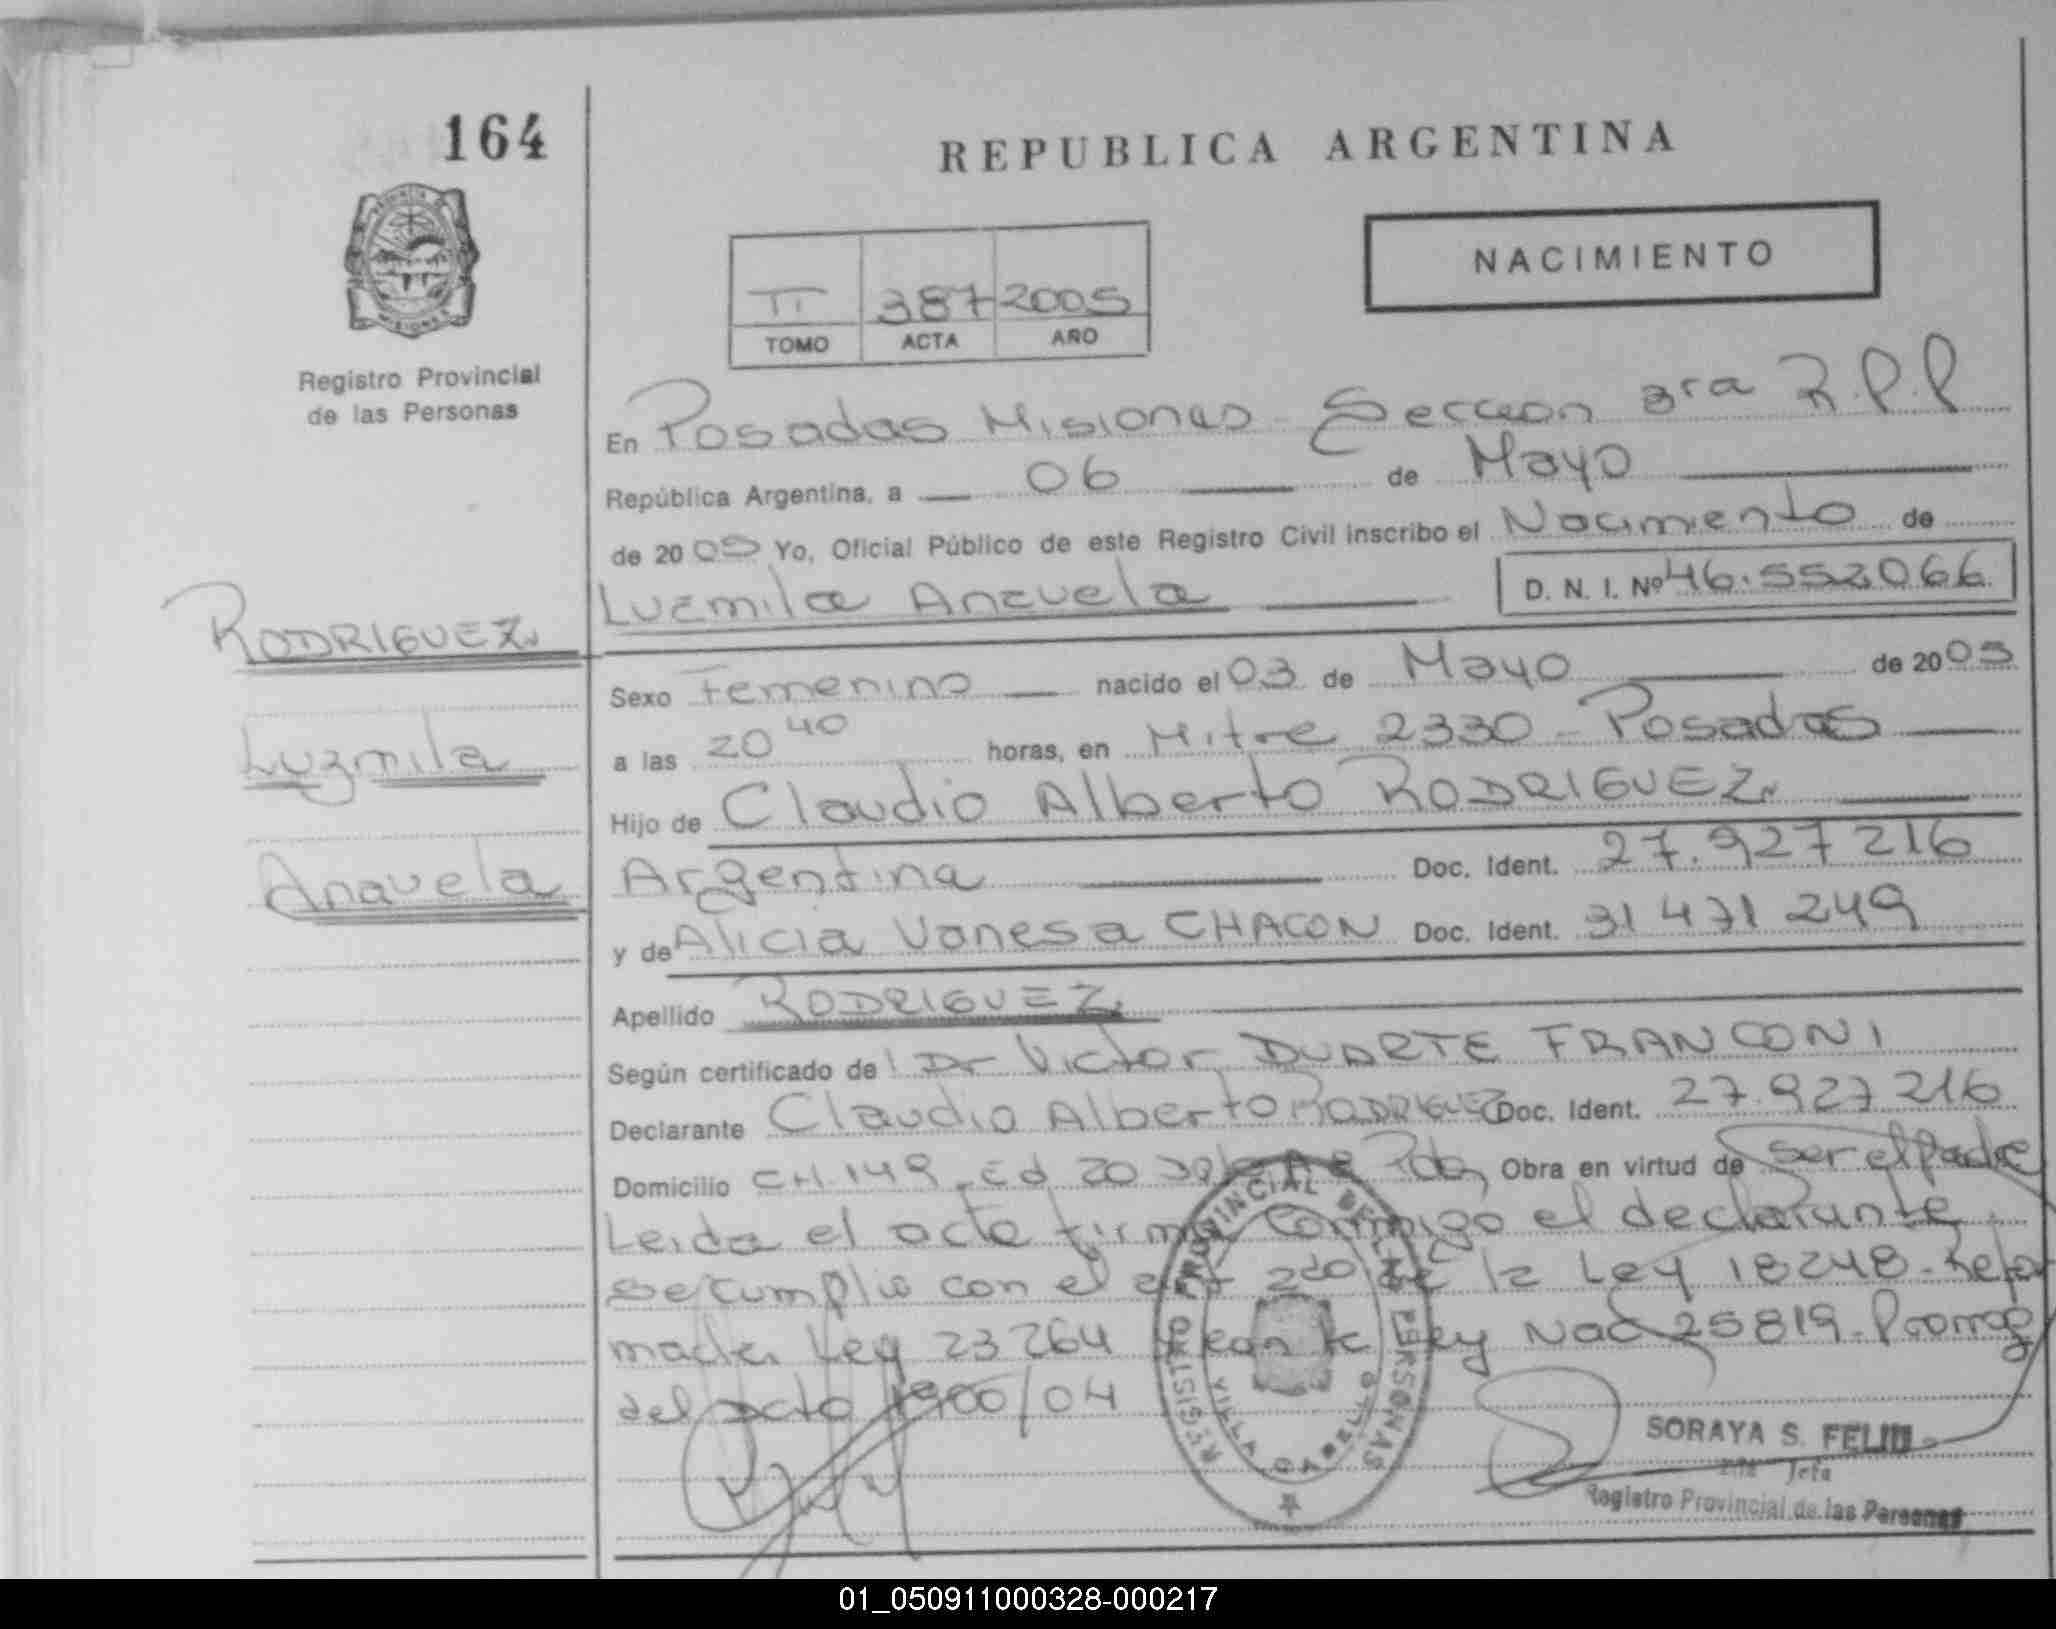 164
REPUBLICA ARGENTINA
NACIMIENTO
TI 387 2005
TOMO ACTA AÑO
Registro Provincial
de las Personas
En Posadas Misiones - Seccion 3ra R.P.P
República Argentina, a 06 de Mayo
de 2005 Yo, Oficial Público de este Registro Civil inscribo el Nacimiento de
Luzmila Anavela D. N. I. Nº 46.552066
RODRIGUEZ
Luzmila
Anavela
Sexo Femenino nacido el 03 de Mayo de 2005
a las 20 40 horas, en Mitre 2330 - Posadas
Hijo de Claudio Alberto RODRIGUEZ
Argentina Doc. Ident. 27.927216
y de Alicia Vanesa CHACON Doc. Ident. 31471249
Apellido RODRIGUEZ
Según certificado de Dr Victor DUARTE FRANCONI
Declarante Claudio Alberto RODRIGUEZ Doc. Ident. 27.927216
Domicilio CH 149 Ed 20 Pdas Obra en virtud de ser el padre
Leida el acta firma conmigo el declarante
se cumplio con el art 2do de la Ley 18248 - Refor
mada Ley 23264 Ley Nac 25819 - Prorrog
del acto 1900/04
REGISTRO PROVINCIAL DE LAS PERSONAS
VILLA CABELLO
SORAYA S. FELIU
Jefa
Registro Provincial de las Personas
01_050911000328-000217